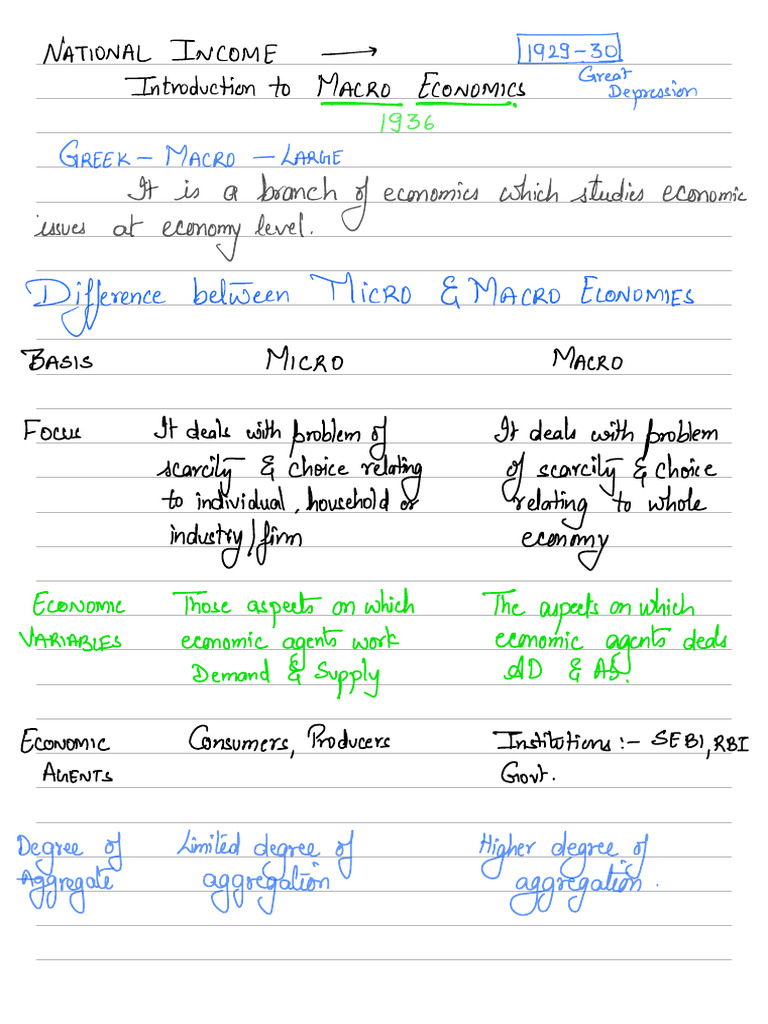 NATIONAL INCOME → 1929-30
Great
Introduction to MACRO ECONOMICS Depression
1936
GREEK - MACRO - LARGE
It is a branch of economics which studies economic
issues at economy level.
Difference between MICRO & MACRO ECONOMIES
BASIS MICRO MACRO
Focus It deals with problem of It deals with problem
scarcity & choice relating of scarcity & choice
to individual, household or relating to whole
industry/firm economy
ECONOMIC Those aspects on which The aspects on which
VARIABLES economic agents work economic agents deals
Demand & Supply AD & AS.
ECONOMIC Consumers, Producers Institutions :- SEBI, RBI
AGENTS Govt.
Degree of Limited degree of Higher degree of
Aggregate aggregation aggregation.